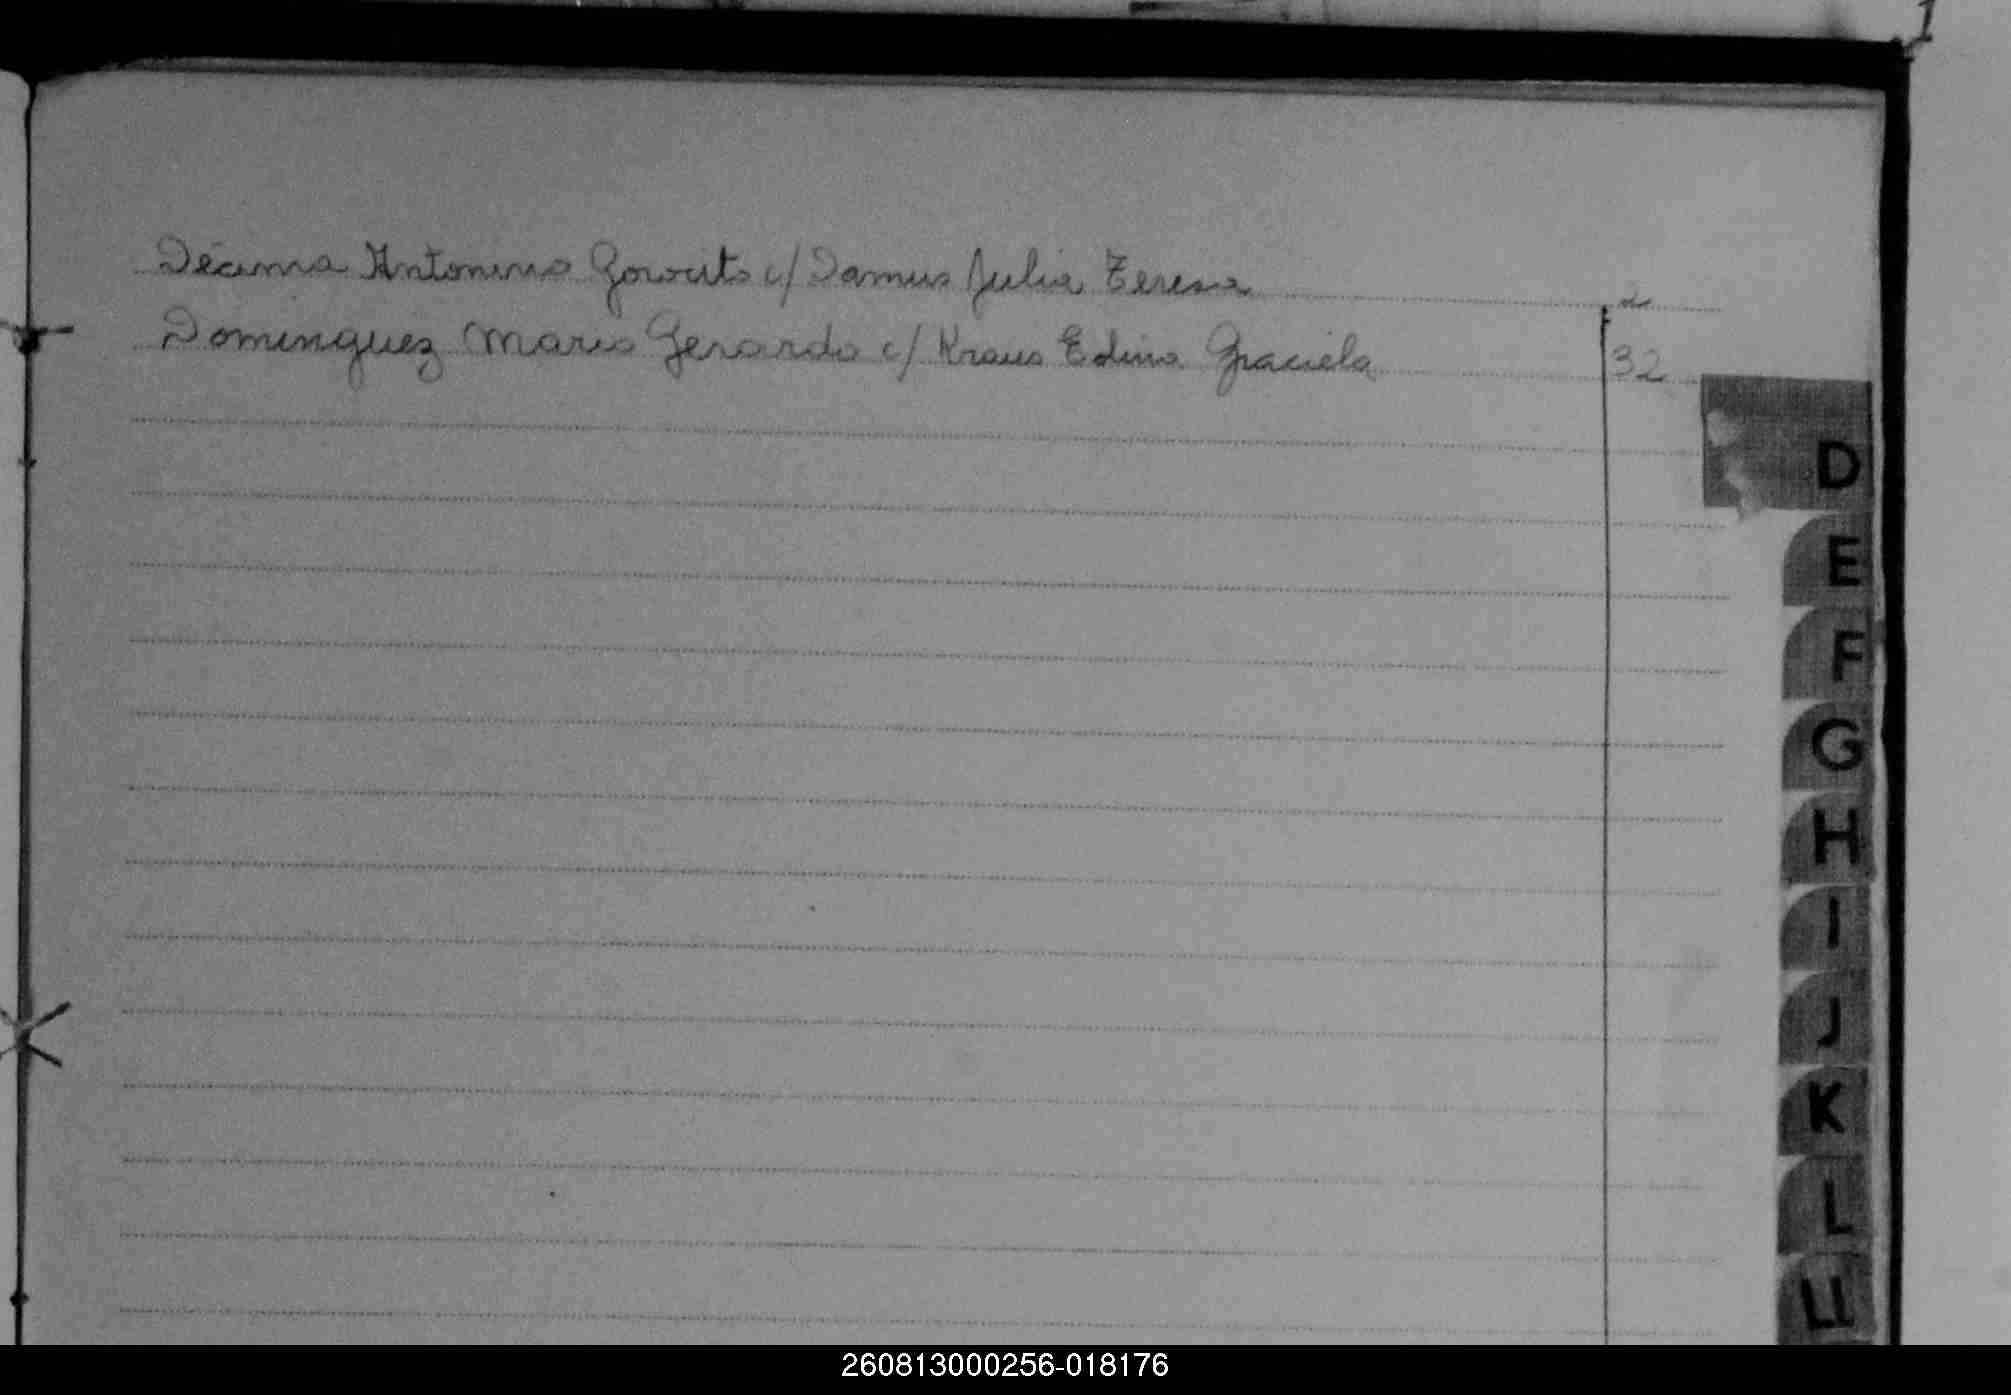 Décima Antonino Gorocito c/ Damus Julia Teresa 2
Dominguez Mario Gerardo c/ Kraus Edina Graciela 32
D
E
F
G
H
I
J
K
L
Ll
260813000256-018176